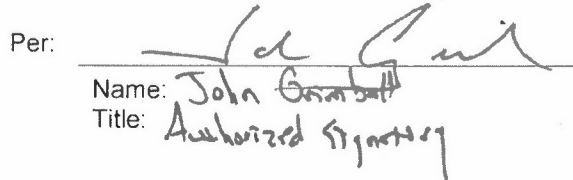 Per:
Name: John
Title: Authorized Signatory